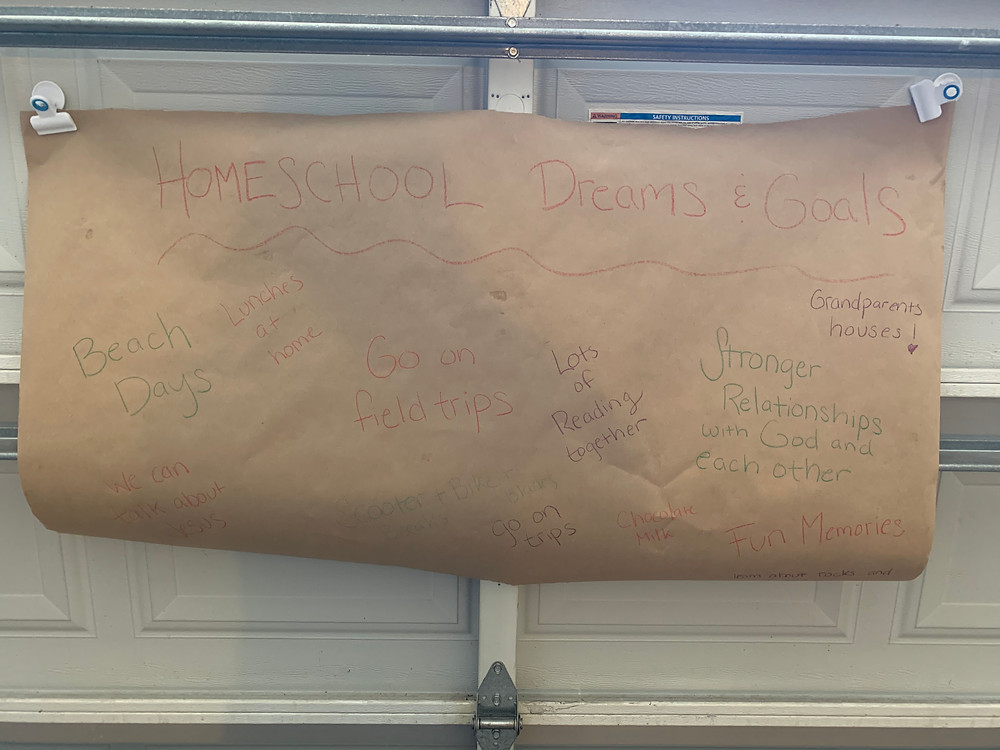 SAFETY INSTRUCTIONS
HOMESCHOOL Dreams & Goals
Grandparents
houses!
Lunches
at
home
Beach
Days
Go on
field trips
Lots
of
Reading
together
Stronger
Relationships
with God and
each other
We can
talk about
Jesus
Scooter + Bike
go on
trips
Chocolate
Milk
Fun Memories
learn about rocks and